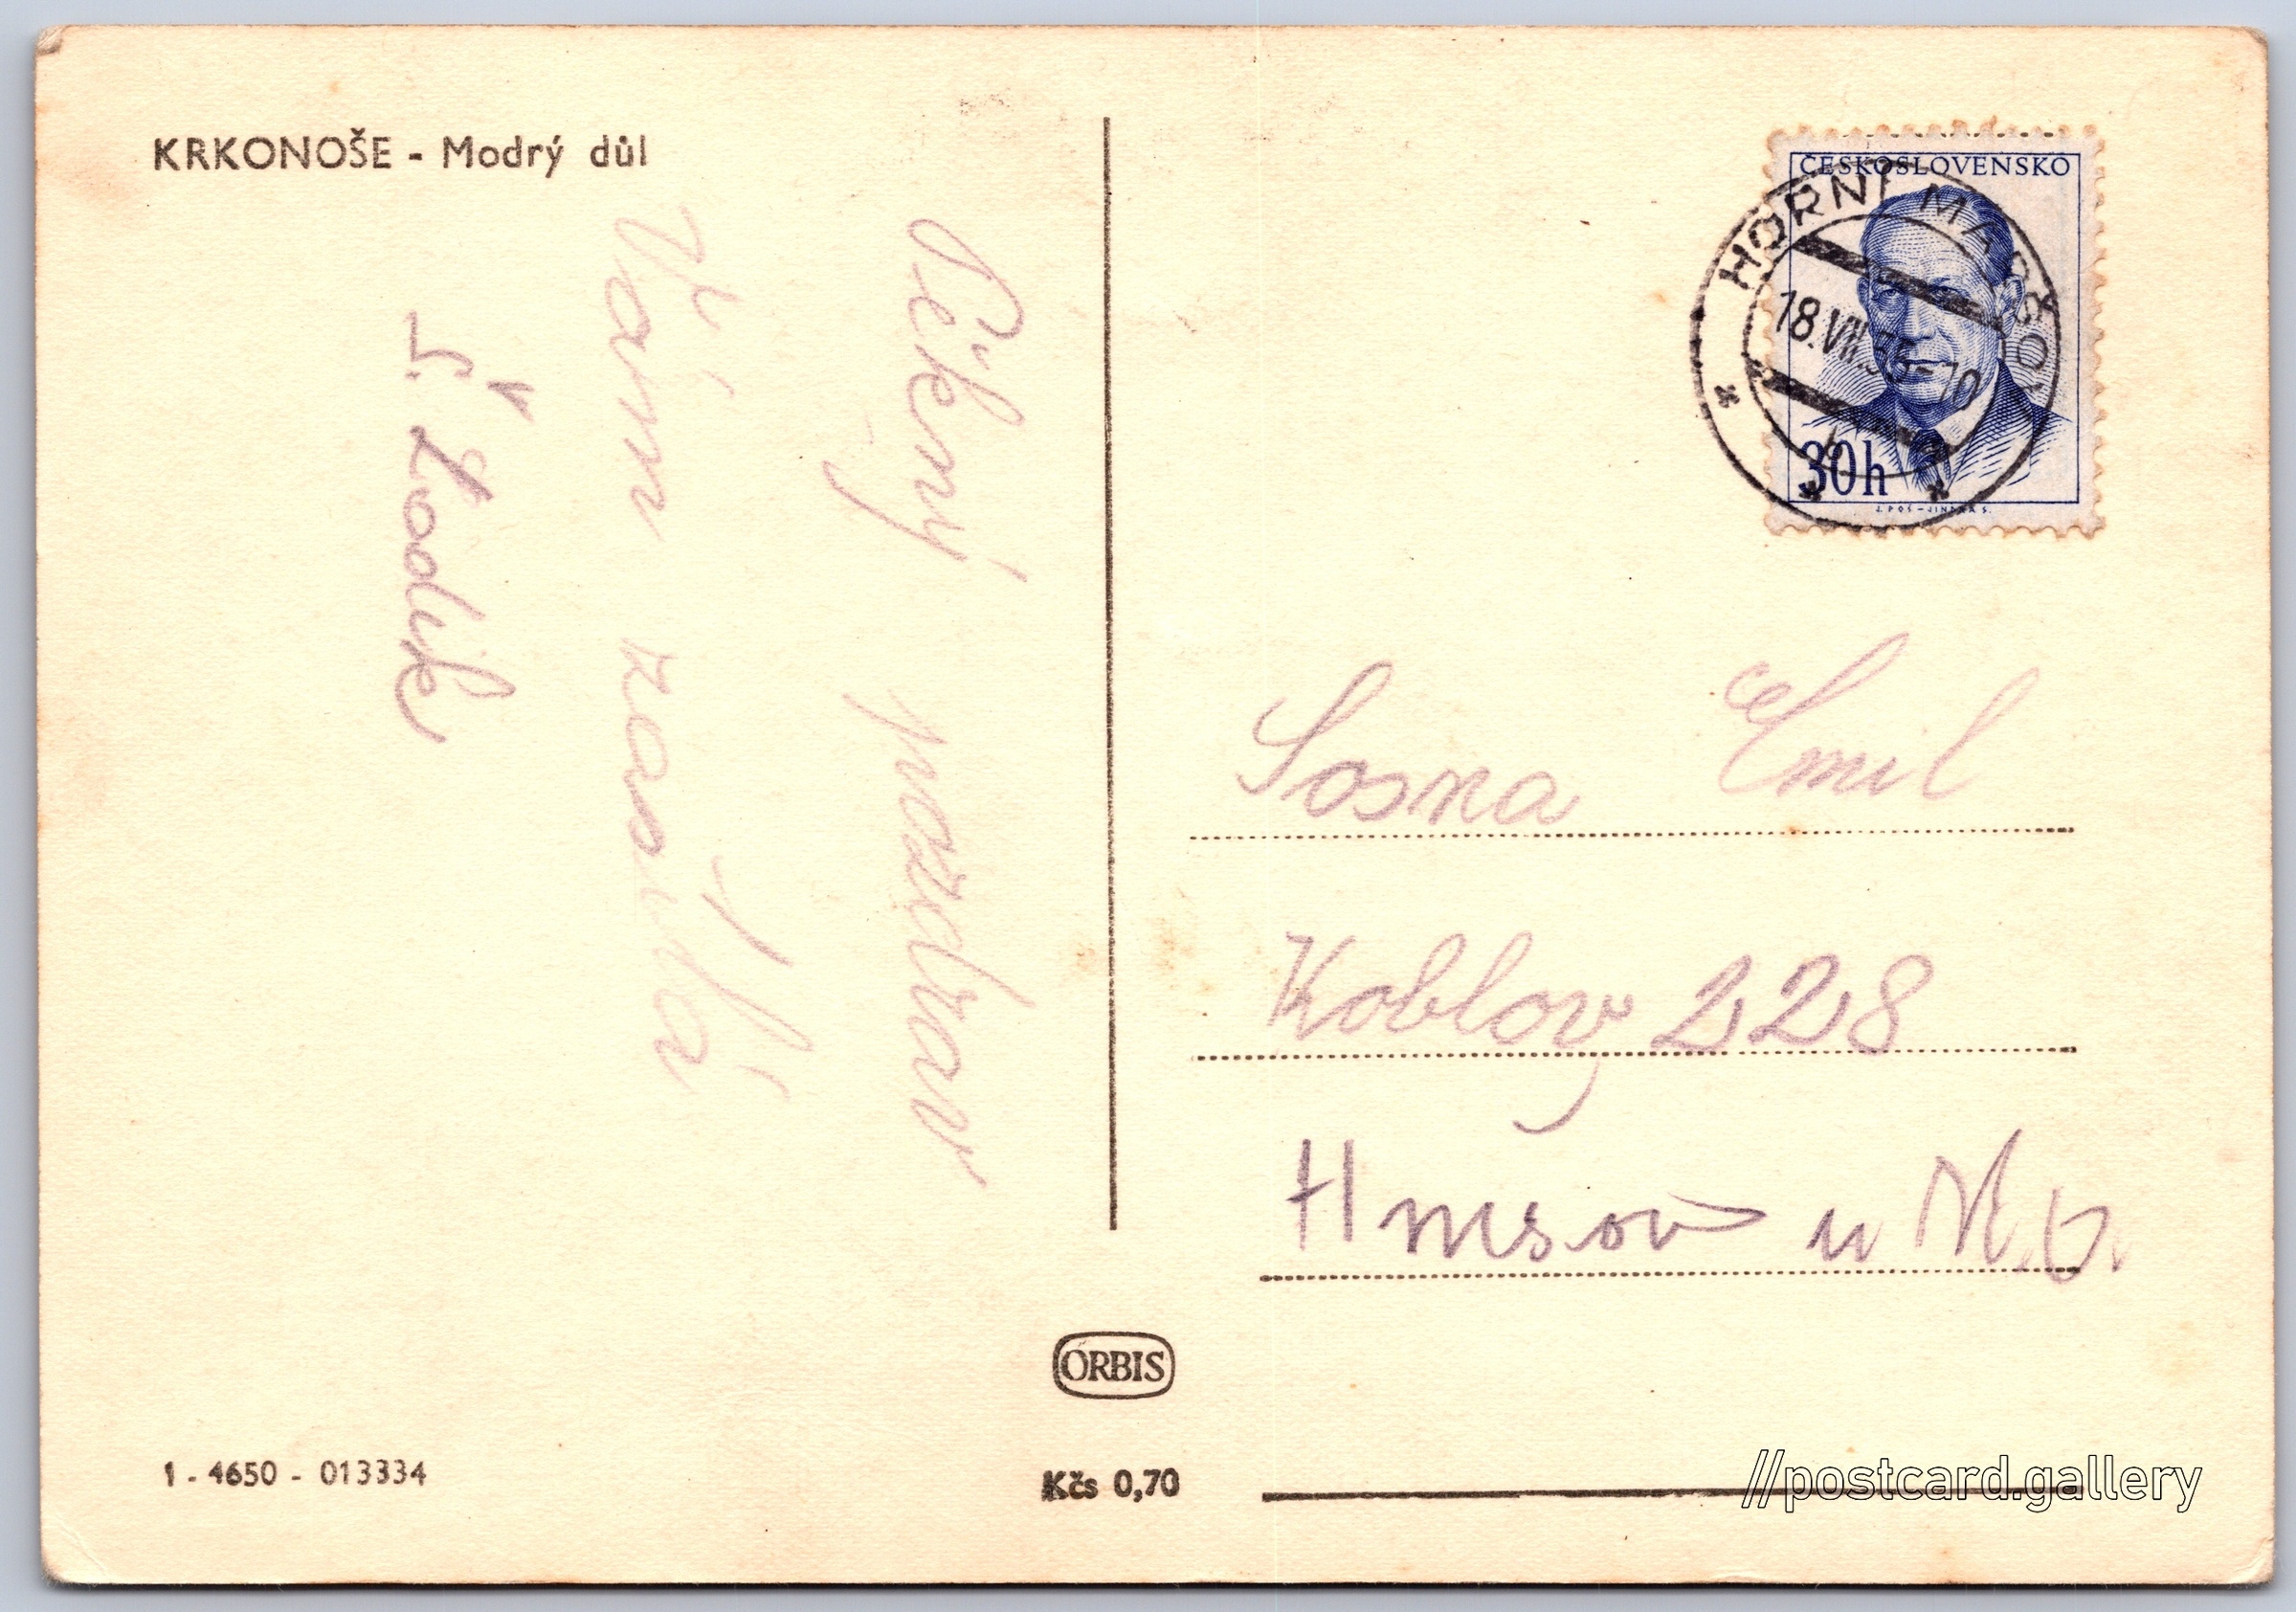 KRKONOŠE - Modrý důl
Pěkný pozdrav
Vám
L. Žodik
ČESKOSLOVENSKO
30h
HORNÍ MARŠOV
18.VII.
Sosna Emil
Koblov 228
u M.O.
ORBIS
1 - 4650 - 013334
Kčs 0,70
//postcard.gallery